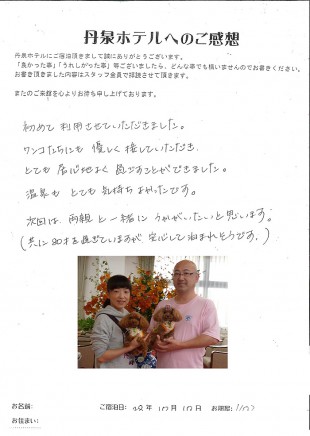 丹泉ホテルへのご感想
丹泉ホテルにご宿泊頂きまして誠にありがとうございます。
「良かった事」「うれしかった事」等ございましたら、どんな事でも構いませんのでお書きください。
お書き頂きました内容はスタッフ全員で拝読させて頂きます。
またのご来館を心よりお待ち申し上げております。
初めて利用させていただきました。
ワンコたちにも優しく接していただき、
とても居心地よく過ごすことができました。
温泉もとても気持ちよかったです。
次回は、両親と一緒にうかがいたいと思います。
(共に80才を過ぎていますが安心して泊まれそうです。)
お名前:
ご宿泊日: 28年 10月 10日 お部屋:
お住まい: